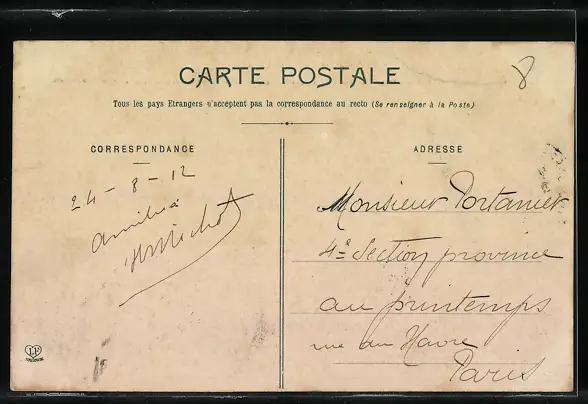 CARTE POSTALE
Tous les pays Etrangers n'acceptent pas la correspondance au recto (Se renseigner à la Poste)
CORRESPONDANCE
ADRESSE
8
24-8-12
Monsieur Portanier
4e Section province
au printemps
rue du Havre
Paris
LF